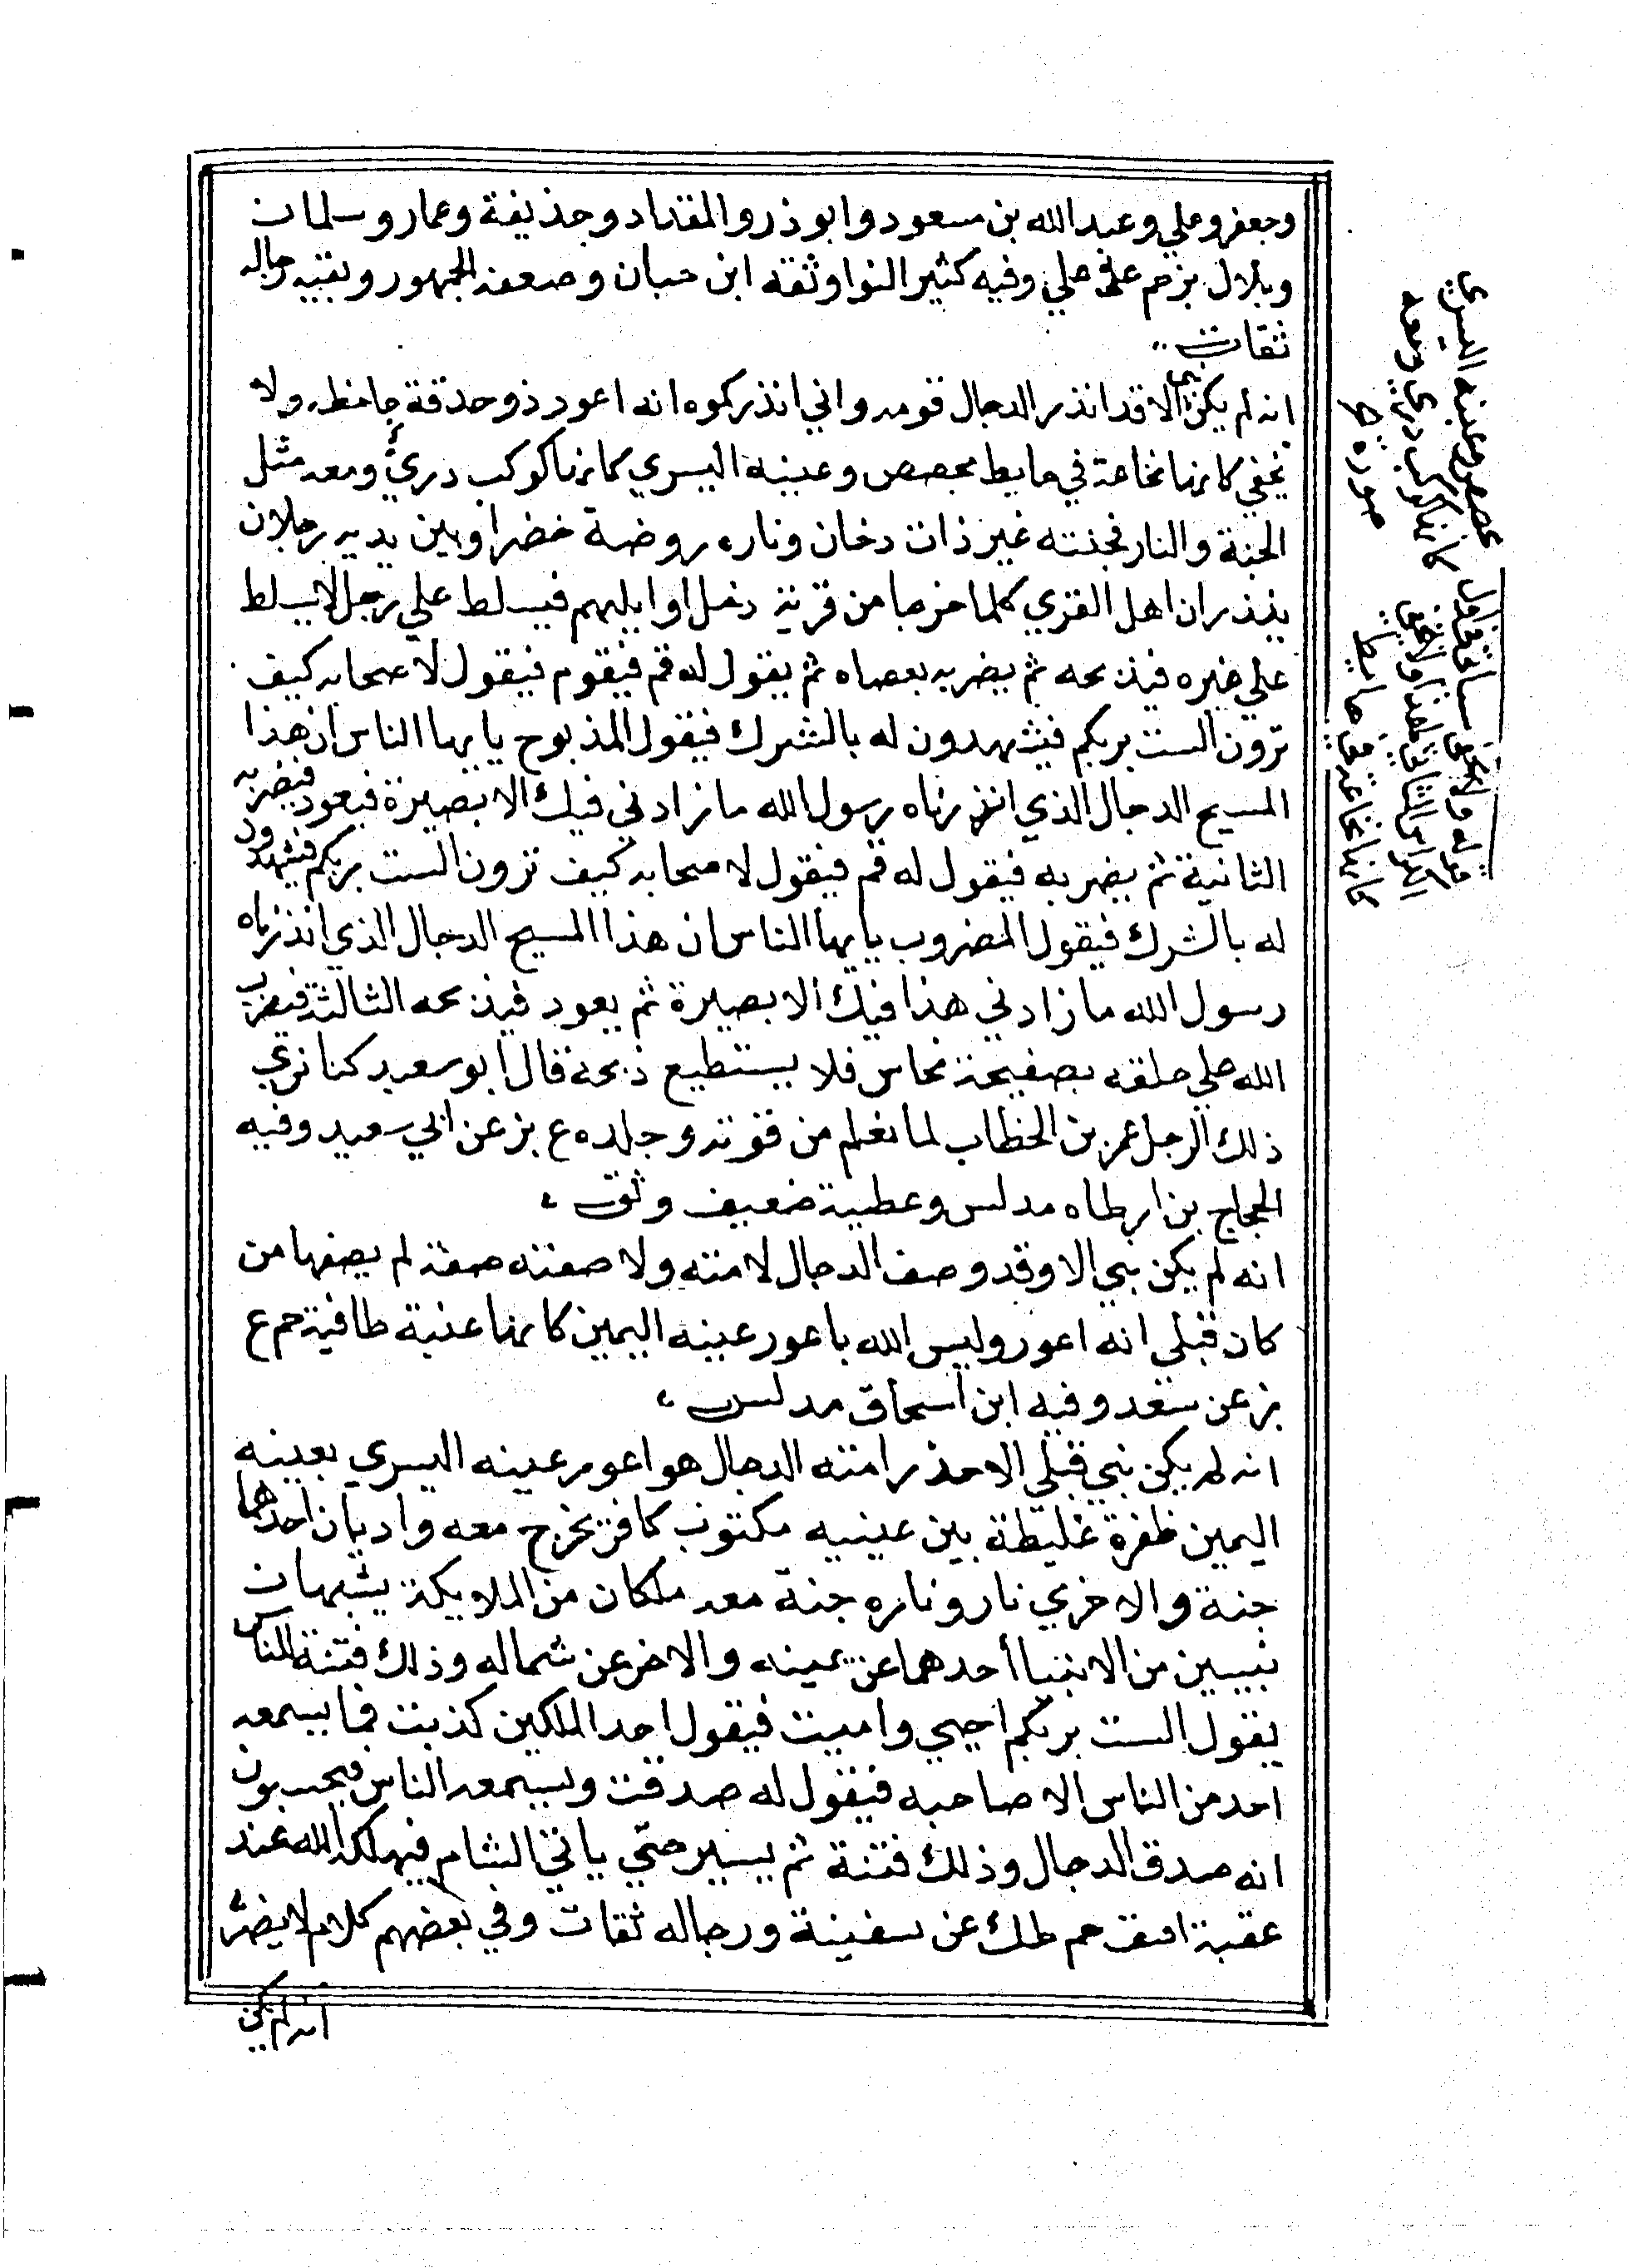 وجعفر وعلي وعبد الله بن مسعود وابو ذر والمقداد وحذيفة وعمار وسلمان
وبلال بز حم عن علي وفيه كثير النوا وثقه ابن حبان وضعفه الجمهور وبقيه رجاله
ثقات
انه لم يكن نبي الا قد انذر الدجال قومه واني انذركموه انه اعور ذو حدقة جاحظه ولا
تخفي كانها نخاعة في حايط مجصص وعينه اليسري كانها كوكب دريّ ومعه مثل
الجنة والنار فجنته غير ذات دخان وناره روضة خضرا وبين يديه رجلان
ينذران اهل القري كلما خرجا من قرية دخل اوايلهم فيسلط علي رجل لا يسلط
علي غيره فيذبحه ثم يضربه بعصاه ثم يقول له قم فيقوم فيقول لاصحابه كيف
ترون الست بربكم فيشهدون له بالشرك فيقول المذبوح يايها الناس ان هذا
المسيح الدجال الذي انذرناه رسول الله ما زادني فيك الا بصيرة فيعود فيضربه
الثانية ثم يضربه فيقول له قم فيقول لاصحابه كيف ترون الست بربكم فيشهدون
له بالشرك فيقول المضروب يايها الناس ان هذا المسيح الدجال الذي انذرناه
رسول الله ما زادني هذا فيك الا بصيرة ثم يعود فيذبحه الثالثة فيضرب
الله علي حلقه بصفيحة نحاس فلا يستطيع ذبحه قال ابو سعيد كنا نري
ذلك الرجل عمر بن الخطاب لما نعلم من قوته وجلده ع بز عن ابي سعيد وفيه
الحجاج بن ارطاه مدلس وعطية ضعيف وثق
انه لم يكن نبي الا وقد وصف الدجال لامته ولاصفنه صفة لم يصفها من
كان قبلي انه اعور وليس الله باعور عينه اليمين كانها عنبة طافية حم ع
بز عن سعد وفيه ابن اسحاق مدلس
انه لم يكن نبي قبلي الا حذر امته الدجال هو اعور عينه اليسري بعينه
اليمين ظفرة غليظة بين عينيه مكتوب كافر يخرج معه واديان احدهما
جنة والاخري نار وناره جنة معه ملكان من الملايكة يشبهان
نبيين من الانبيا أحدهما عن يمينه والاخر عن شماله وذلك فتنة للناس
يقول الست بربكم احيي واميت فيقول احد الملكين كذبت فما يسمعه
احد من الناس الا صاحبه فيقول له صدقت ويسمعه الناس فيحسبون
انه صدق الدجال وذلك فتنة ثم يسير حتي ياتي الشام فيهلكه الله عند
عقبة افيق حم طك عن سفينة ورجاله ثقات وفي بعضهم كلام لا يضر
انه لم يكن
كانها نخاعة في حايط
مجصص وعينه اليسري
كانها كوكب دري ومعه
صورة